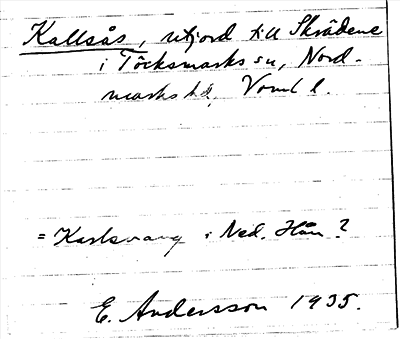 Kallsås, utjord till Skrädene
i Töcksmarks sn, Nord-
marks hd. Vrml l.
= Karlsvang i Ned. Hån?
E. Andersson 1935.